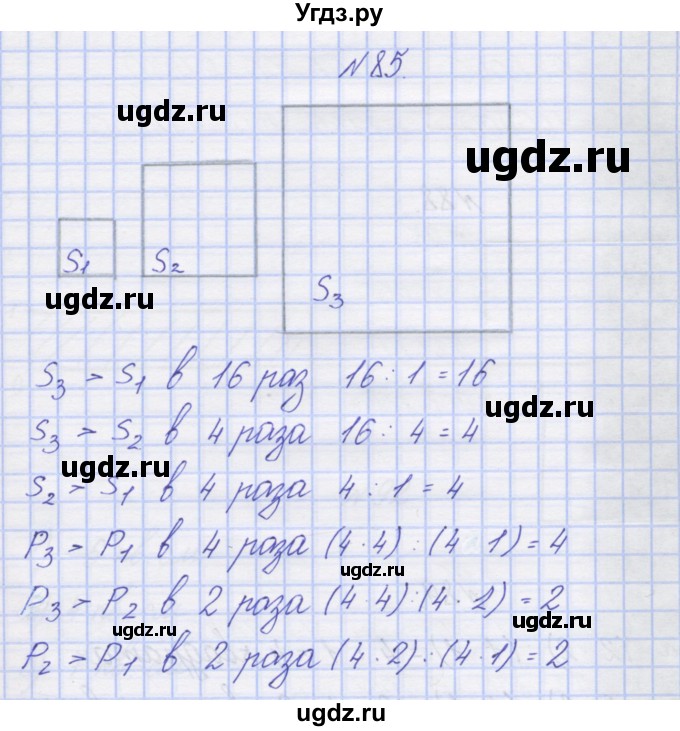 Угдз.ру
N85.
ugdz.ru
ugdz.ru
S1 S2 S3
ugdz.ru
S3 > S1 в 16 раз 16 : 1 = 16
ugdz.ru
S3 > S2 в 4 раза 16 : 4 = 4
ugdz.ru
S2 > S1 в 4 раза 4 : 1 = 4
P3 > P1 в 4 раза (4·4) : (4·1) = 4
ugdz.ru
P3 > P2 в 2 раза (4·4) : (4·2) = 2
ugdz.ru
P2 > P1 в 2 раза (4·2) : (4·1) = 2
ugdz.ru